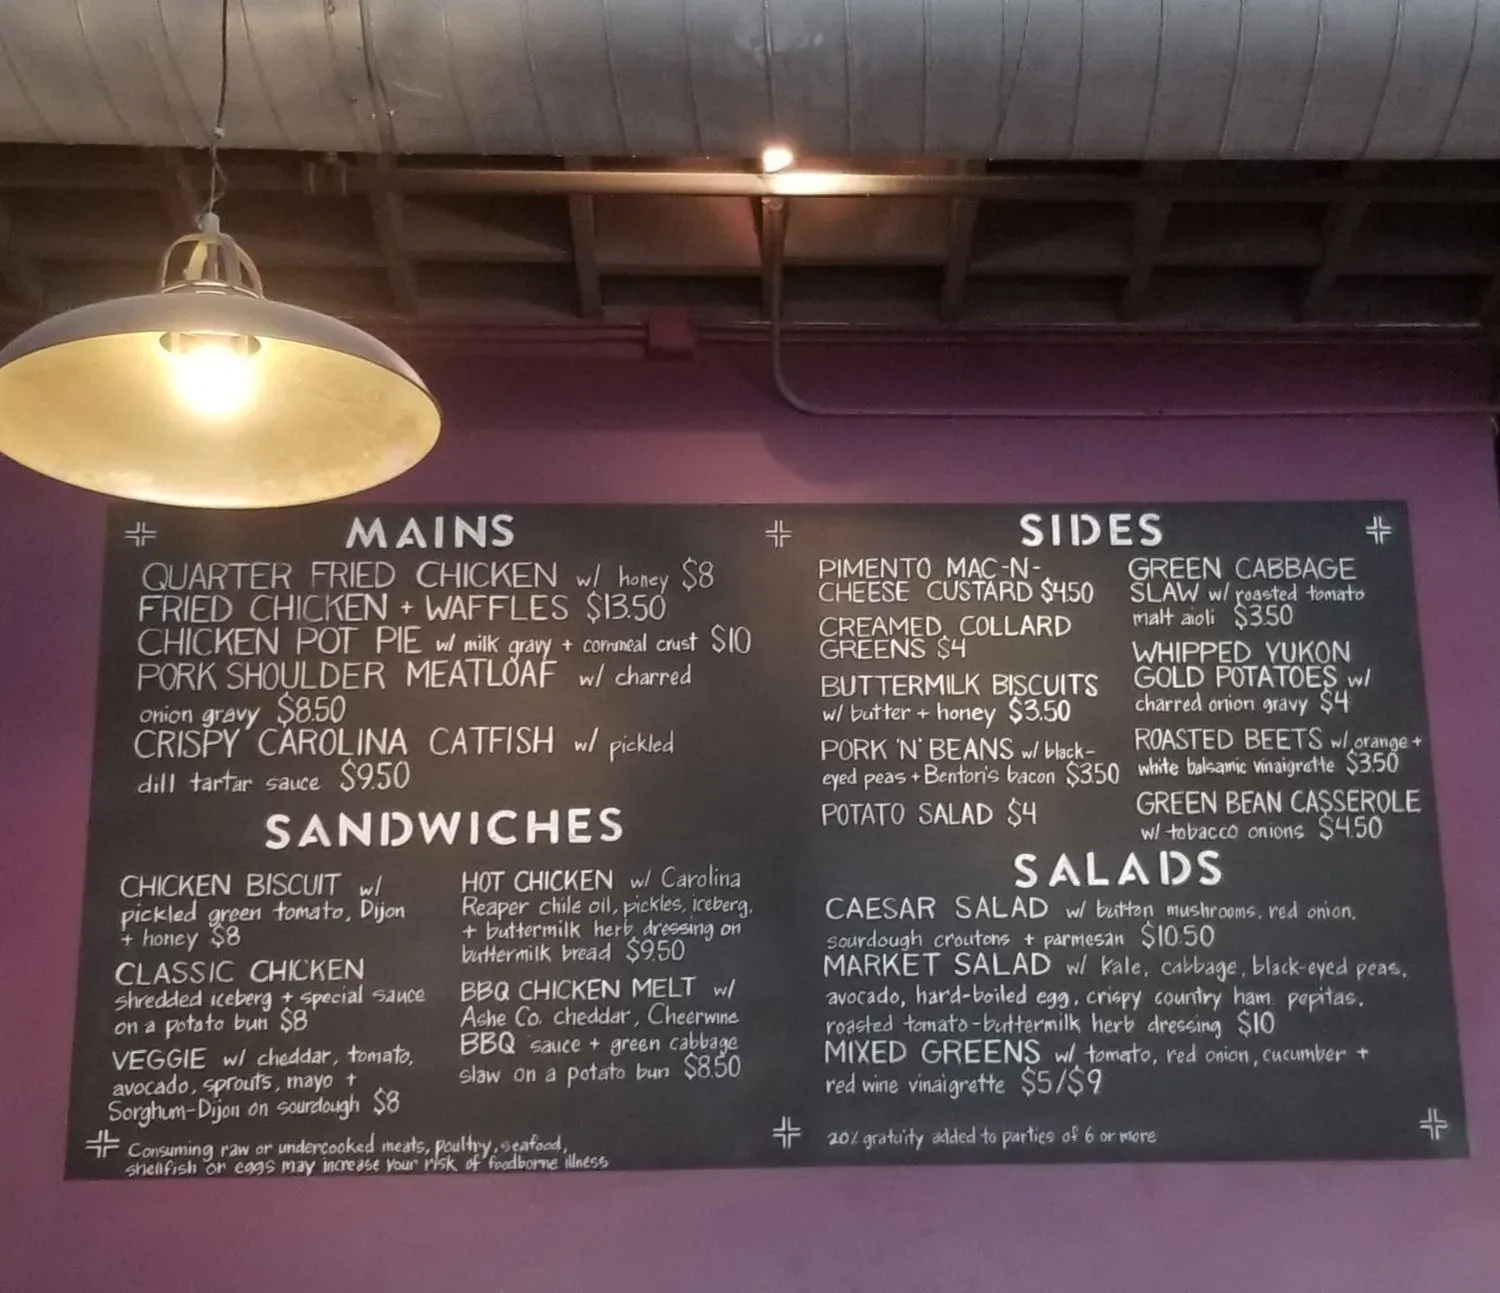 MAINS
QUARTER FRIED CHICKEN w/ honey $8
FRIED CHICKEN + WAFFLES $13.50
CHICKEN POT PIE w/ milk gravy + cornmeal crust $10
PORK SHOULDER MEATLOAF w/ charred
onion gravy $8.50
CRISPY CAROLINA CATFISH w/ pickled
dill tartar sauce $9.50
SANDWICHES
CHICKEN BISCUIT w/
pickled green tomato, Dijon
+ honey $8
CLASSIC CHICKEN
shredded iceberg + special sauce
on a potato bun $8
VEGGIE w/ cheddar, tomato,
avocado, sprouts, mayo +
Sorghum-Dijon on sourdough $8
HOT CHICKEN w/ Carolina
Reaper chile oil, pickles, iceberg,
+ buttermilk herb dressing on
buttermilk bread $9.50
BBQ CHICKEN MELT w/
Ashe Co. cheddar, Cheerwine
BBQ sauce + green cabbage
slaw on a potato bun $8.50
Consuming raw or undercooked meats, poultry, seafood,
shellfish or eggs may increase your risk of foodborne illness
SIDES
PIMENTO MAC-N-
CHEESE CUSTARD $4.50
CREAMED COLLARD
GREENS $4
BUTTERMILK BISCUITS
w/ butter + honey $3.50
PORK 'N' BEANS w/ black-
eyed peas + Benton's bacon $3.50
POTATO SALAD $4
GREEN CABBAGE
SLAW w/ roasted tomato
malt aioli $3.50
WHIPPED YUKON
GOLD POTATOES w/
charred onion gravy $4
ROASTED BEETS w/ orange +
white balsamic vinaigrette $3.50
GREEN BEAN CASSEROLE
w/ tobacco onions $4.50
SALADS
CAESAR SALAD w/ button mushrooms, red onion,
sourdough croutons + parmesan $10.50
MARKET SALAD w/ kale, cabbage, black-eyed peas,
avocado, hard-boiled egg, crispy country ham, pepitas,
roasted tomato-buttermilk herb dressing $10
MIXED GREENS w/ tomato, red onion, cucumber +
red wine vinaigrette $5/$9
20% gratuity added to parties of 6 or more